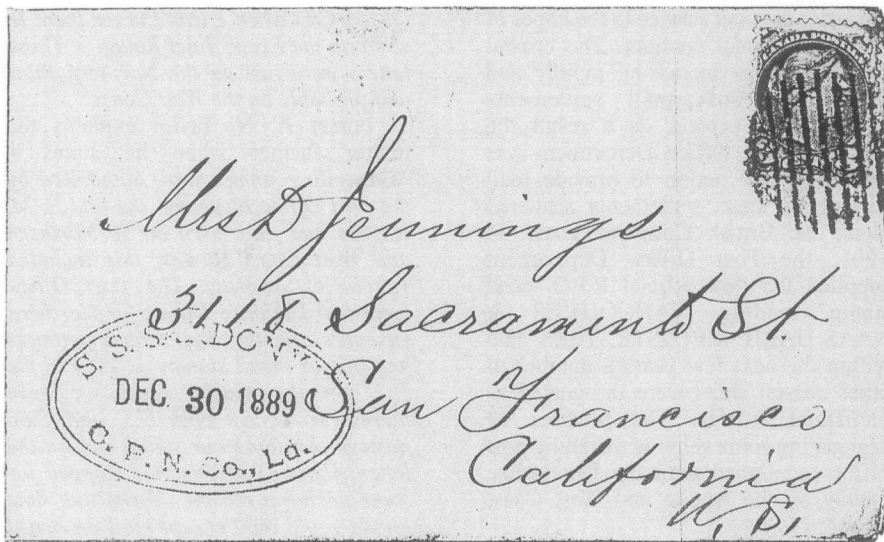 Mrs D Jennings
3118 Sacramento St
San Francisco
California
U, S,
S. S. SARDONYX
DEC. 30 1889
C. P. N. Co., Ld.